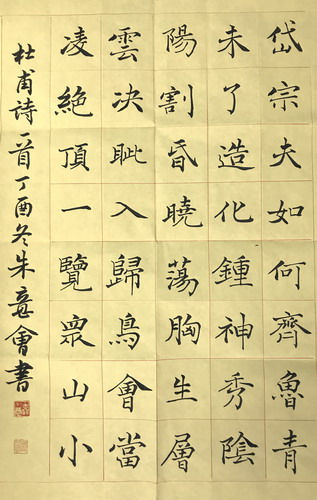 岱宗夫如何齊魯青
未了造化鍾神秀陰
陽割昏曉蕩胸生層
雲决眦入歸鳥會當
凌絕頂一覽眾山小
杜甫詩一首丁酉冬朱意會書